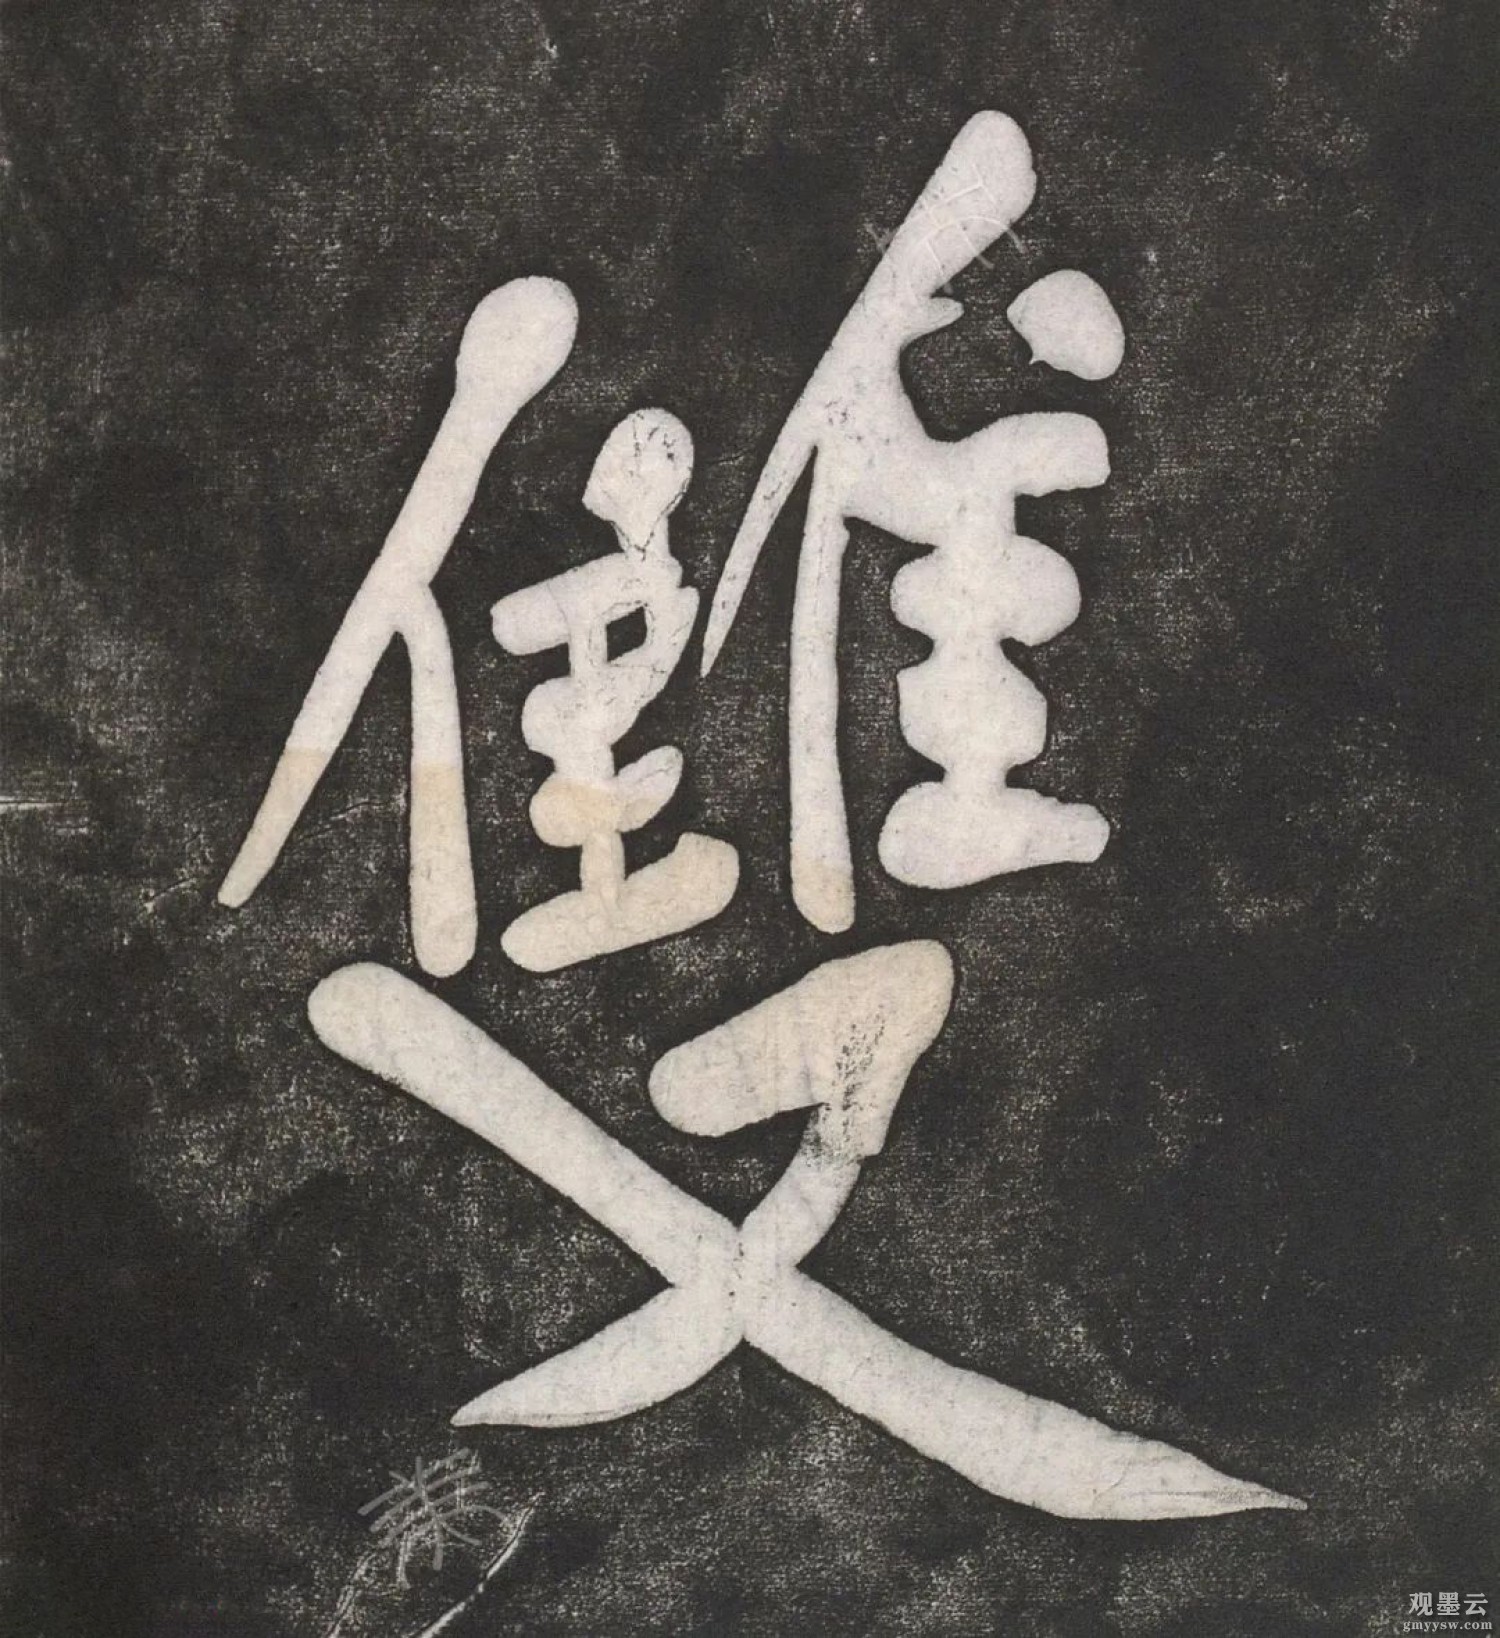 雙
观墨云
gmyysw.com